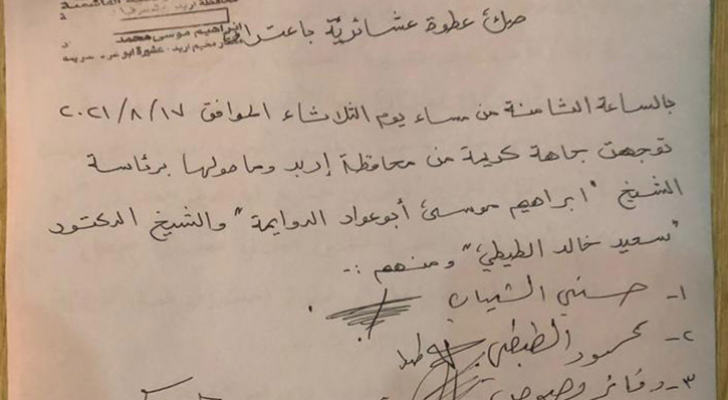 محافظة اربد
ابراهيم موسى محمد
مختار مخيم اربد - عشيرة ابو
صك عطوة عشائرية باعتراف
بالساعة الثامنة من مساء يوم الثلاثاء الموافق ٢٠٢١/٨/١٧
توجهت جاهة كريمة من محافظة إربد وما حولها برئاسة
الشيخ "ابراهيم موسى أبو عواد الدوايمة" والشيخ الدكتور
"سعيد خالد الطيطي" ومنهم :-
١- حسني الشياب
٢- محمود الطيطي
٣-